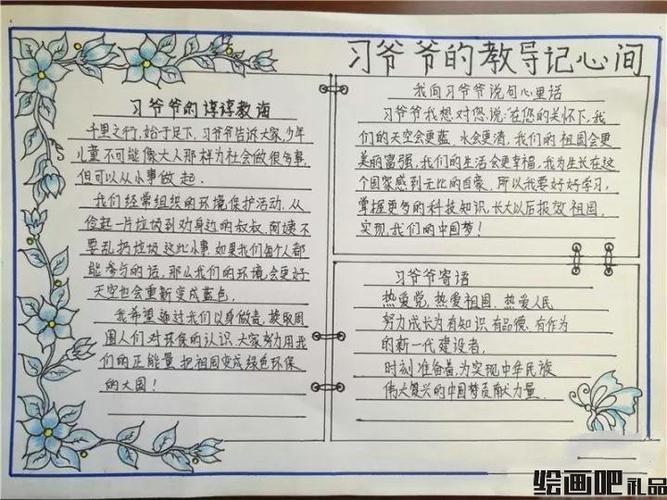 习爷爷的教导记心间
习爷爷的谆谆教诲
千里之行，始于足下，习爷爷告诉大家，少年
儿童不可能像大人那样为社会做很多事，
但可以从小事做起.
我们经常组织的环境保护活动，从
捡起一片垃圾到劝身边的叔叔，阿姨不
要乱扔垃圾这些小事，如果我们每个人都
能参与的话，那么我们的环境会更好
天空也会重新变成蓝色.
我希望通过我们以身做责，换取周
围人们对环保的认识，大家努力用我
们的正能量，把祖国变成绿色环保
的大国！
我向习爷爷说句心里话
习爷爷我想对您说：在您的关怀下，我
们的天空会更蓝，水会更清，我们的祖国会更
美丽富强，我们的生活会更幸福，我为生长在这
个国家感到无比的自豪.所以我要好好学习，
掌握更多的科技知识，长大以后报效祖国，
实现我们的中国梦！
习爷爷寄语
热爱党，热爱祖国，热爱人民
努力成长为有知识，有品德，有作为
的新一代建设者，
时刻准备着，为实现中华民族
伟大复兴的中国梦贡献力量.
绘画吧礼品